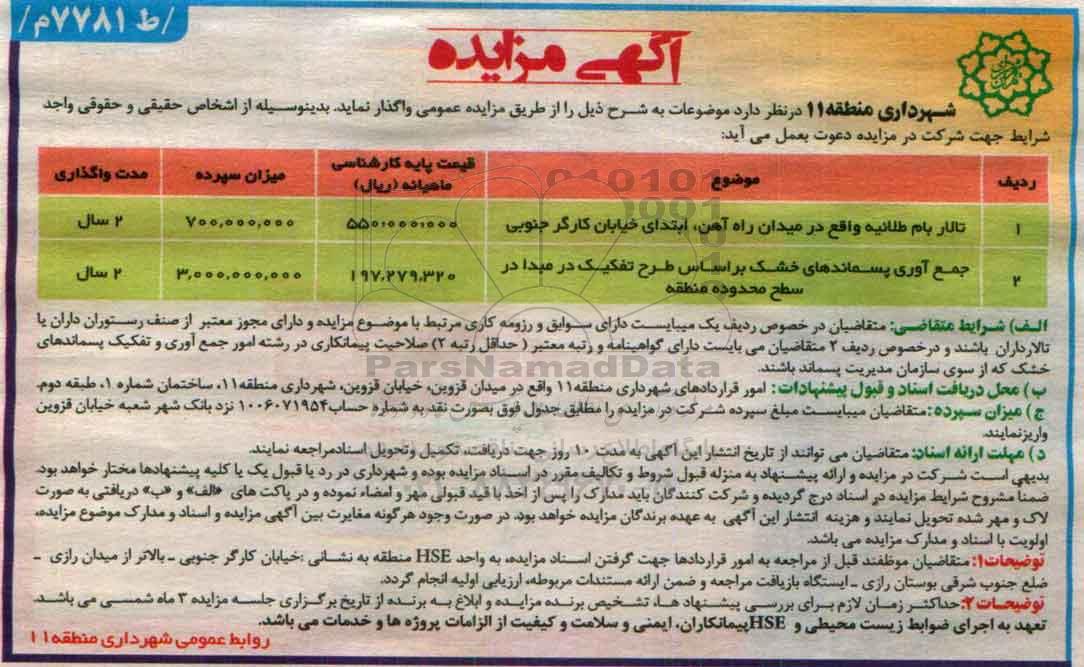 /ط ۷۷۸۱م/
آگهی مزایده
شهرداری منطقه۱۱ درنظر دارد موضوعات به شرح ذیل را از طریق مزایده عمومی واگذار نماید. بدینوسیله از اشخاص حقیقی و حقوقی واجد
شرایط جهت شرکت در مزایده دعوت بعمل می آید:
ردیف موضوع قیمت پایه کارشناسی ماهیانه (ریال) میزان سپرده مدت واگذاری
۱ تالار بام طلائیه واقع در میدان راه آهن، ابتدای خیابان کارگر جنوبی ۵۵۰،۰۰۰،۰۰۰ ۷۰۰,۰۰۰,۰۰۰ ۲ سال
۲ جمع آوری پسماندهای خشک براساس طرح تفکیک در مبدا در سطح محدوده منطقه ۱۹۷,۲۷۹,۳۲۰ ۳,۰۰۰,۰۰۰,۰۰۰ ۲ سال
الف) شرایط متقاضی: متقاضیان در خصوص ردیف یک میبایست دارای سوابق و رزومه کاری مرتبط با موضوع مزایده و دارای مجوز معتبر از صنف رستوران داران یا
تالارداران باشند و درخصوص ردیف ۲ متقاضیان می بایست دارای گواهینامه و رتبه معتبر ( حداقل رتبه ۲) صلاحیت پیمانکاری در رشته امور جمع آوری و تفکیک پسماندهای
خشک که از سوی سازمان مدیریت پسماند باشند.
ب) محل دریافت اسناد و قبول پیشنهادات: امور قراردادهای شهرداری منطقه۱۱ واقع در میدان قزوین، خیابان قزوین، شهرداری منطقه۱۱، ساختمان شماره ۱، طبقه دوم.
ج) میزان سپرده: متقاضیان میبایست مبلغ سپرده شرکت در مزایده را مطابق جدول فوق بصورت نقد به شماره حساب۱۰۰۶۰۷۱۹۵۴ نزد بانک شهر شعبه خیابان قزوین
واریزنمایند.
د) مهلت ارائه اسناد: متقاضیان می توانند از تاریخ انتشار این آگهی به مدت ۱۰ روز جهت دریافت، تکمیل وتحویل اسنادمراجعه نمایند.
بدیهی است شرکت در مزایده و ارائه پیشنهاد به منزله قبول شروط و تکالیف مقرر در اسناد مزایده بوده و شهرداری در رد یا قبول یک یا کلیه پیشنهادها مختار خواهد بود.
ضمنا مشروح شرایط مزایده در اسناد درج گردیده و شرکت کنندگان باید مدارک را پس از اخذ با قید قبولی مهر و امضاء نموده و در پاکت های «الف» و «ب» دریافتی به صورت
لاک و مهر شده تحویل نمایند و هزینه انتشار این آگهی به عهده برندگان مزایده خواهد بود. در صورت وجود هرگونه مغایرت بین آگهی مزایده و اسناد و مدارک موضوع مزایده،
اولویت با اسناد و مدارک مزایده می باشد.
توضیحات۱: متقاضیان موظفند قبل از مراجعه به امور قراردادها جهت گرفتن اسناد مزایده، به واحد HSE منطقه به نشانی :خیابان کارگر جنوبی ـ بالاتر از میدان رازی ـ
ضلع جنوب شرقی بوستان رازی ـ ایستگاه بازیافت مراجعه و ضمن ارائه مستندات مربوطه، ارزیابی اولیه انجام گردد.
توضیحات۲: حداکثر زمان لازم برای بررسی پیشنهاد ها، تشخیص برنده مزایده و ابلاغ به برنده از تاریخ برگزاری جلسه مزایده ۳ ماه شمسی می باشد.
تعهد به اجرای ضوابط زیست محیطی و HSEپیمانکاران، ایمنی و سلامت و کیفیت از الزامات پروژه ها و خدمات می باشد.
روابط عمومی شهرداری منطقه۱۱
ParsNamadData